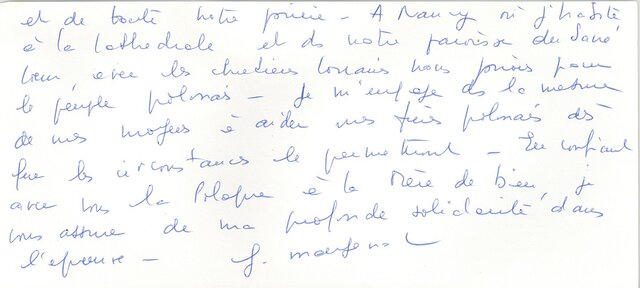 et de toute notre prière - A Nancy où j'habite
à la Cathédrale et ds notre paroisse du Sacré
Cœur, avec les chrétiens lorrains nous prions pour
le peuple polonais - Je m'engage ds la mesure
de mes moyens à aider mes frères polonais dès
que les circonstances le permettront - En confiant
avec vous la Pologne à la Mère de Dieu, je
vous assure de ma profonde solidarité dans
l'épreuve - J.